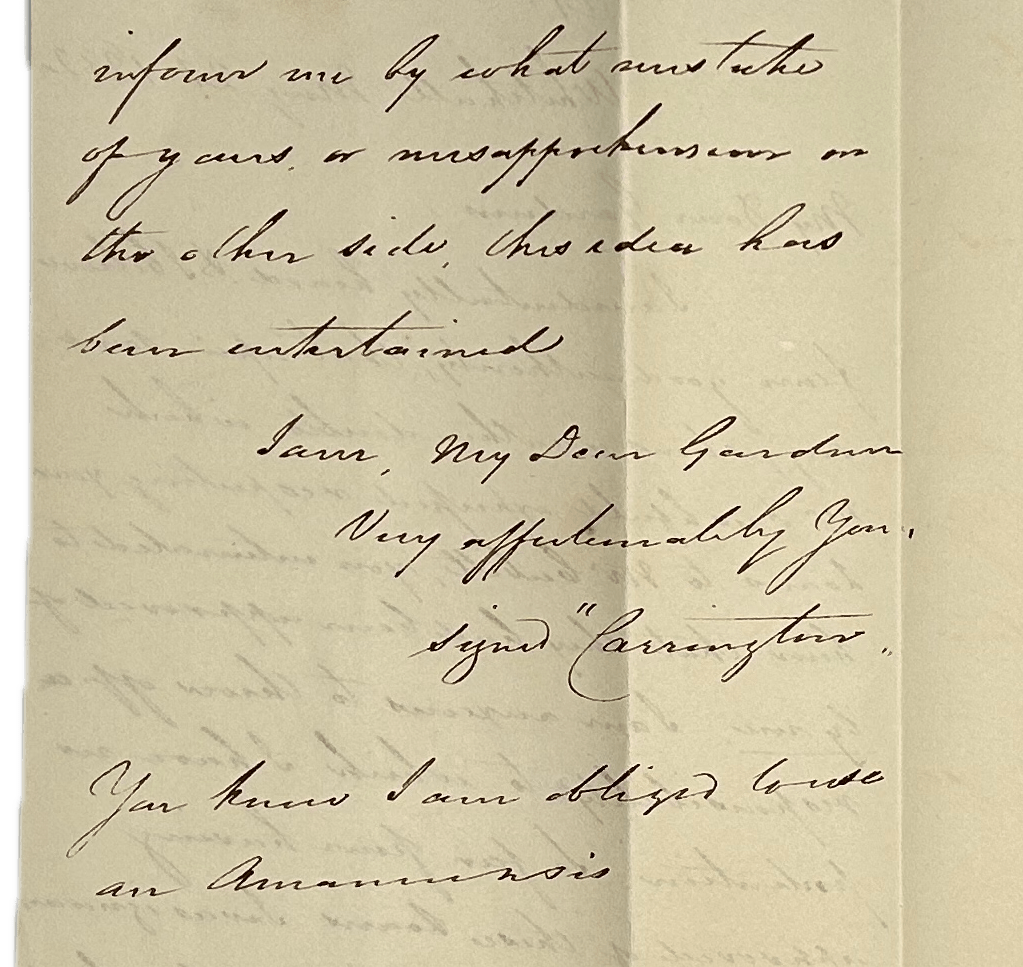 inform me by what mistake
of yours, or misapprehension on
the other side, this idea has
been entertained
I am, My Dear Gardner
Very affectionately Yours,
signed "Carrington"
You know I am obliged to use
an Amanuensis